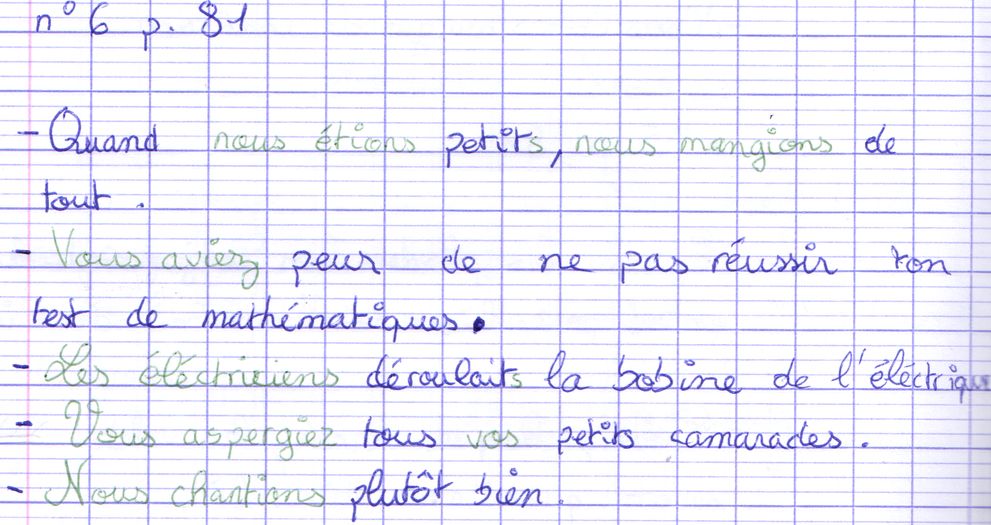 n° 6 p. 81
- Quand nous étions petits, nous mangions de
tout.
- Vous aviez peur de ne pas réussir ton
test de mathématiques.
- Les éléctriciens déroulaits la bobine de l'éléctrique
- Vous aspergiez tous vos petits camarades.
- Nous chantions plutôt bien.